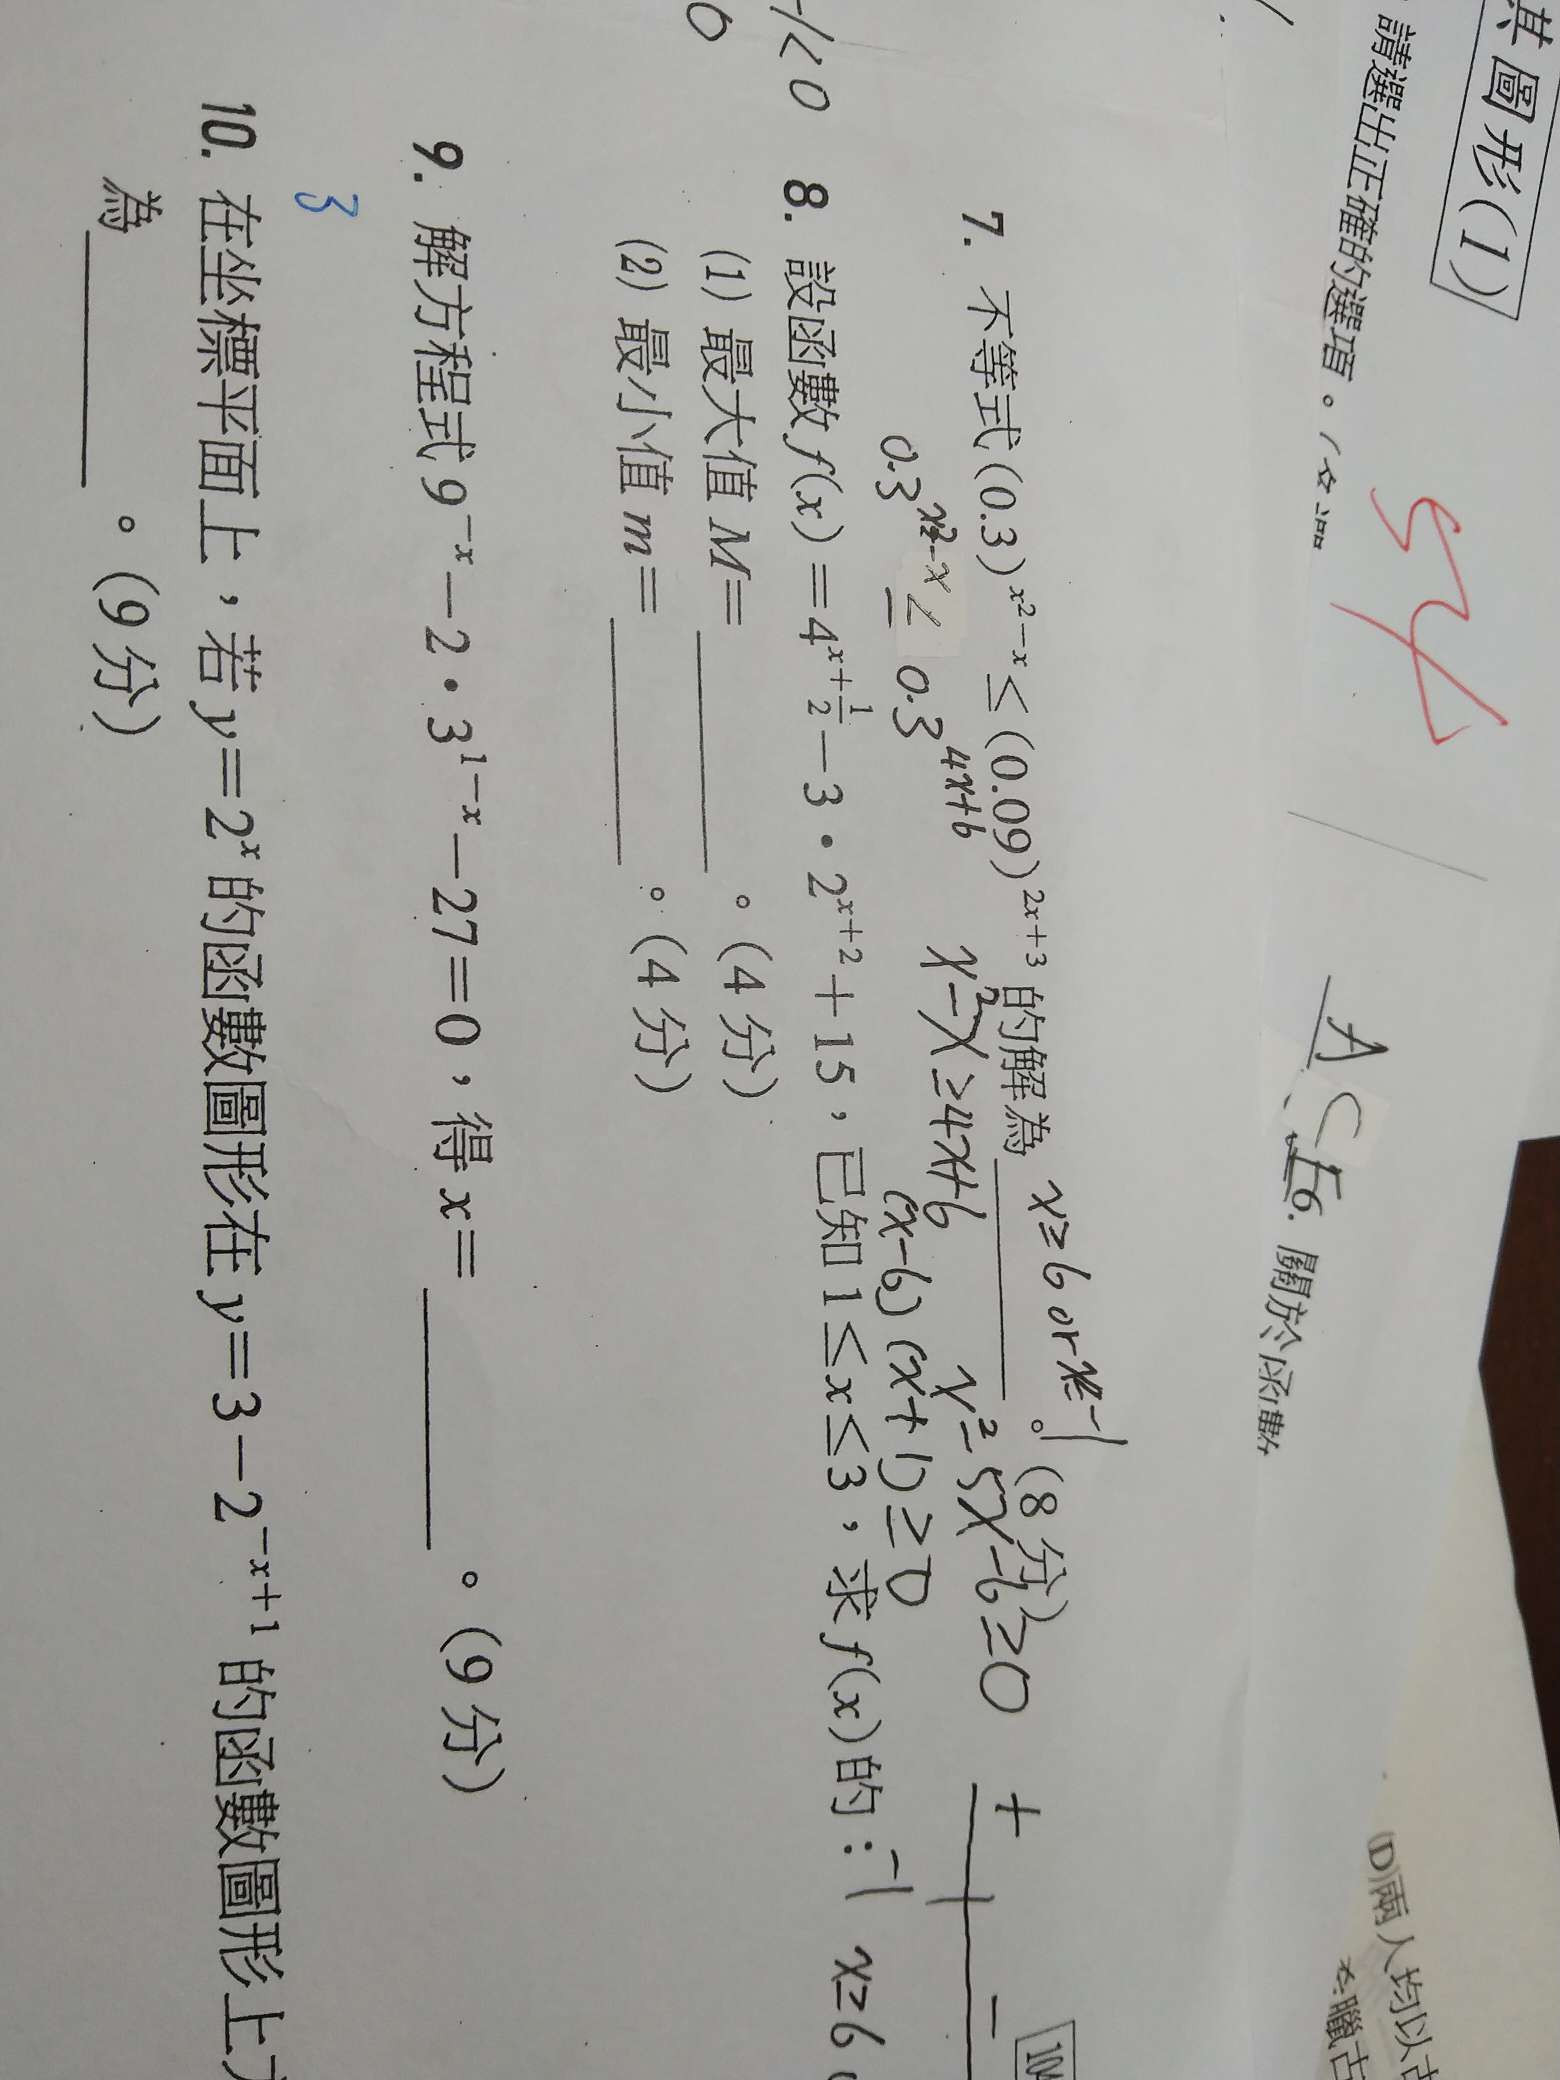 其圖形(1)
請選出正確的選項。
54
A C E 6. 關於函數
(D)兩人均以古
7. 不等式(0.3)^{x²-x} ≤ (0.09)^{2x+3} 的解為 x≥6 or x≤-1 。(8分)
0.3^{x²-x} ≤ 0.3^{4x+6} x²-x≥4x+6 x²-5x-6≥0
(x-6)(x+1)≥0
+ -
-1 x≥6
-1<0 8. 設函數 f(x)=4^{x+1/2}-3·2^{x+2}+15,已知1≤x≤3,求f(x)的:
(1) 最大值 M=______。(4分)
(2) 最小值 m=______。(4分)
9. 解方程式 9^{-x}-2·3^{1-x}-27=0,得x=______。(9分)
3
10. 在坐標平面上,若y=2^x 的函數圖形在y=3-2^{-x+1} 的函數圖形上
為______。(9分)